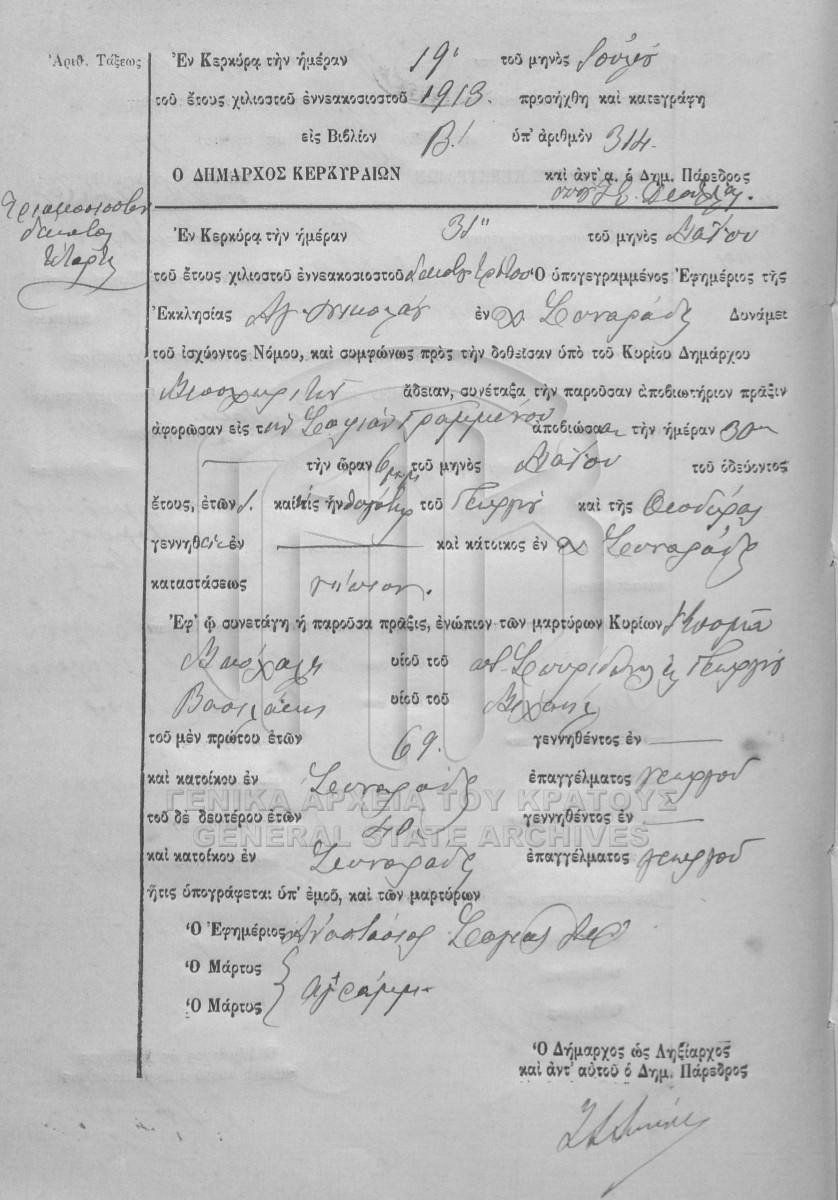 Ἀριθ. Τάξεως
Τριακοσιοστὸν
δέκατον
τέταρτον
Ἐν Κερκύρᾳ τὴν ἡμέραν 19 τοῦ μηνὸς Ἰουλίου
τοῦ ἔτους χιλιοστοῦ ἐννεακοσιοστοῦ 1913. προσήχθη καὶ κατεγράφη
εἰς Βιβλίον Β.' ὑπ' ἀριθμὸν 314.
Ο ΔΗΜΑΡΧΟΣ ΚΕΡΚΥΡΑΙΩΝ καὶ ἀντ' α. ὁ Δημ. Πάρεδρος
Ἐν Κερκύρᾳ τὴν ἡμέραν 31 τοῦ μηνὸς Μαΐου
τοῦ ἔτους χιλιοστοῦ ἐννεακοσιοστοῦ δεκάτου τρίτου Ὁ ὑπογεγραμμένος Ἐφημέριος τῆς
Ἐκκλησίας Ἁγ. Νικολάου ἐν Συναράδες Δυνάμει
τοῦ ἰσχύοντος Νόμου, καὶ συμφώνως πρὸς τὴν δοθεῖσαν ὑπὸ τοῦ Κυρίου Δημάρχου
ἄδειαν, συνέταξα τὴν παροῦσαν ἀποβιωτήριον πρᾶξιν
ἀφορῶσαν εἰς τὴν Σοφίαν Γραμμένου ἀποβιώσασα τὴν ἡμέραν 30
τὴν ὥραν 6 μμ τοῦ μηνὸς Μαΐου τοῦ ὁδεύοντος
ἔτους, ἐτῶν 1. καὶ ἥτις ἦν θυγάτηρ τοῦ Γεωργίου καὶ τῆς Θεοδώρας
γεννηθεῖσα ἐν καὶ κάτοικος ἐν Συναράδες
καταστάσεως νήπιον.
Ἐφ' ᾧ συνετάγη ἡ παροῦσα πρᾶξις, ἐνώπιον τῶν μαρτύρων Κυρίων
υἱοῦ τοῦ Σπυρίδωνος Γεωργίου
Βασιλάκης υἱοῦ τοῦ Μιχαὴλ
τοῦ μὲν πρώτου ἐτῶν 69. γεννηθέντος ἐν
καὶ κατοίκου ἐν Συναράδες ἐπαγγέλματος γεωργοῦ
ΓΕΝΙΚΑ ΑΡΧΕΙΑ ΤΟΥ ΚΡΑΤΟΥΣ
τοῦ δὲ δευτέρου ἐτῶν 40. γεννηθέντος ἐν
GENERAL STATE ARCHIVES
καὶ κατοίκου ἐν Συναράδες ἐπαγγέλματος γεωργοῦ
ἥτις ὑπογράφεται ὑπ' ἐμοῦ, καὶ τῶν μαρτύρων
Ὁ Ἐφημέριος Ἀναστάσιος
Ὁ Μάρτυς
Ὁ Μάρτυς ἀγράμμ.
Ὁ Δήμαρχος ὡς Ληξίαρχος
καὶ ἀντ' αὐτοῦ ὁ Δημ. Πάρεδρος